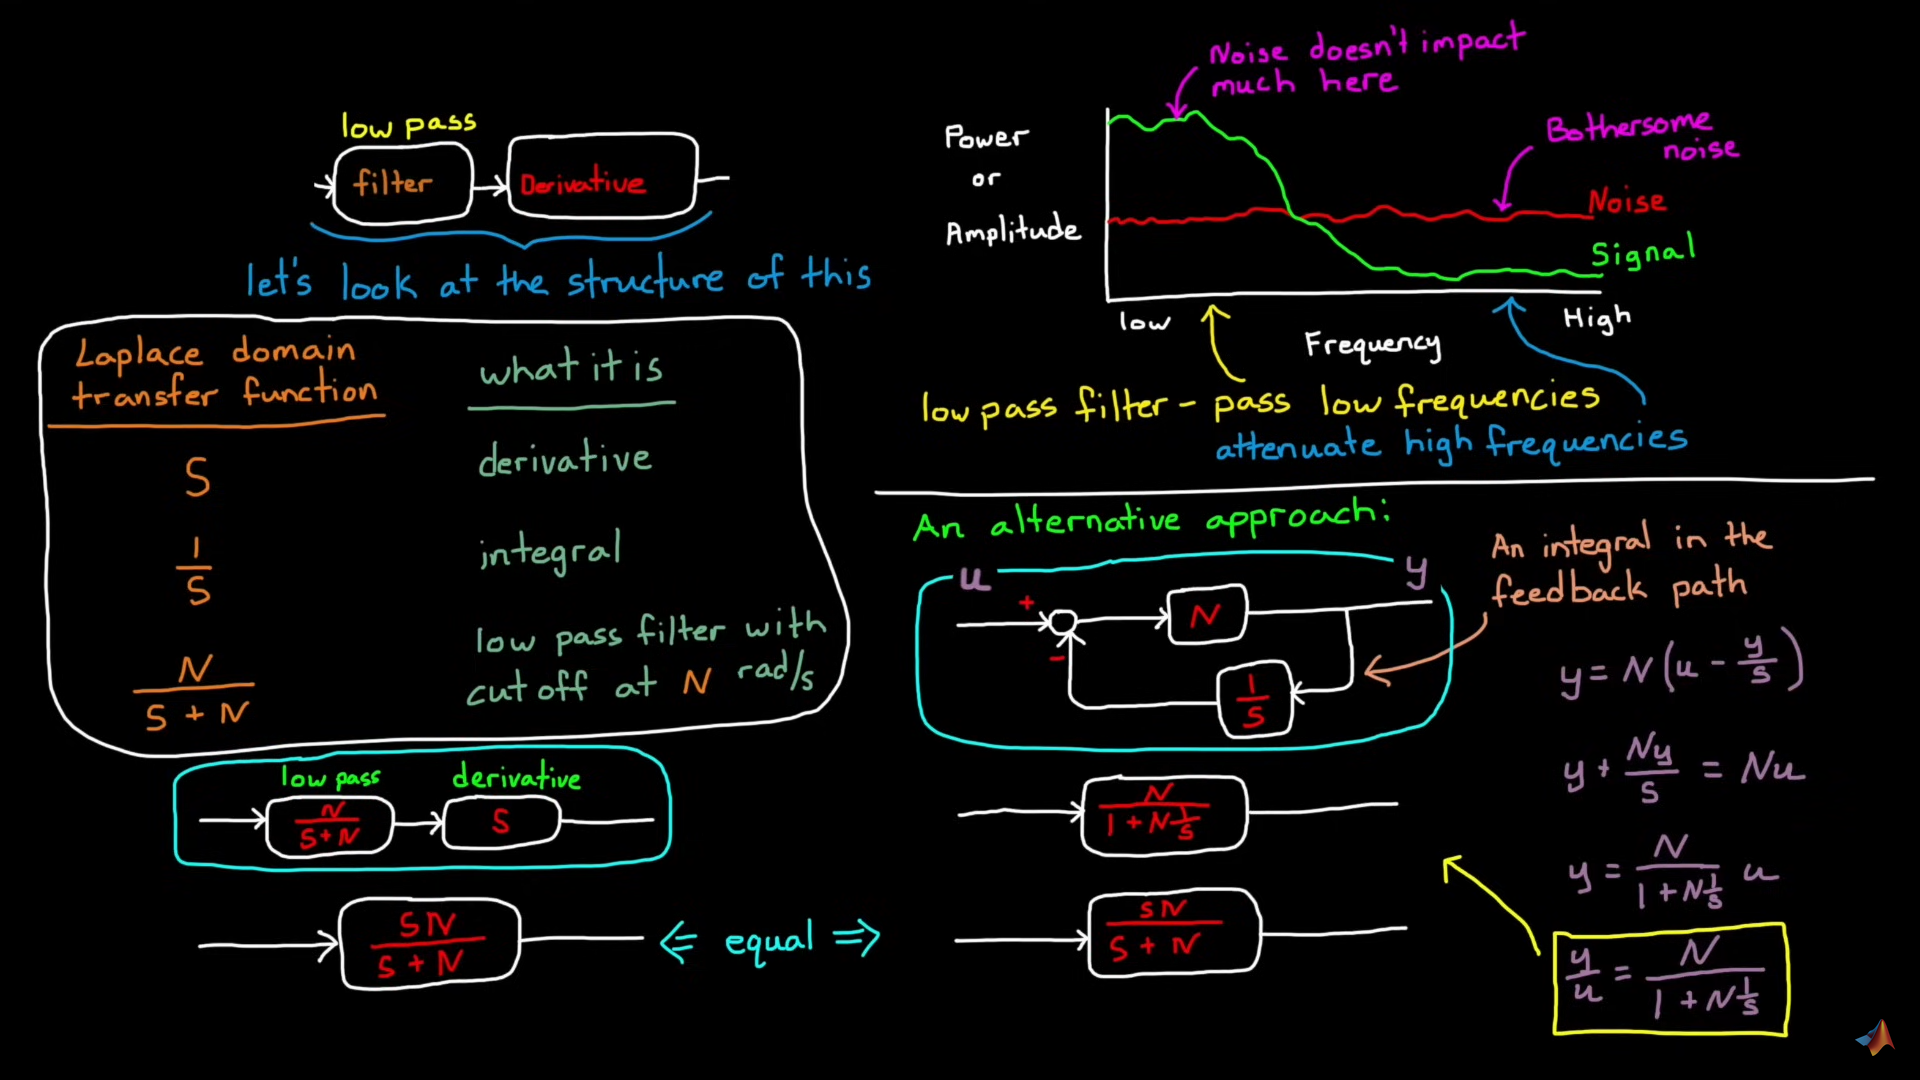 low pass
filter
Derivative
let's look at the structure of this
Laplace domain
transfer function
what it is
S
derivative
1/S
integral
N/(S + N)
low pass filter with
cut off at N rad/s
low pass
derivative
N/(S+N)
S
SN/(S + N)
⇐ equal ⇒
Noise doesn't impact
much here
Bothersome
noise
Power
or
Amplitude
Noise
Signal
low
High
Frequency
low pass filter - pass low frequencies
attenuate high frequencies
An alternative approach:
u
y
+
-
N
1/S
An integral in the
feedback path
N/(1 + N 1/S)
SN/(S + N)
y = N(u - y/S)
y + Ny/S = Nu
y = N/(1 + N 1/S) u
y/u = N/(1 + N 1/S)